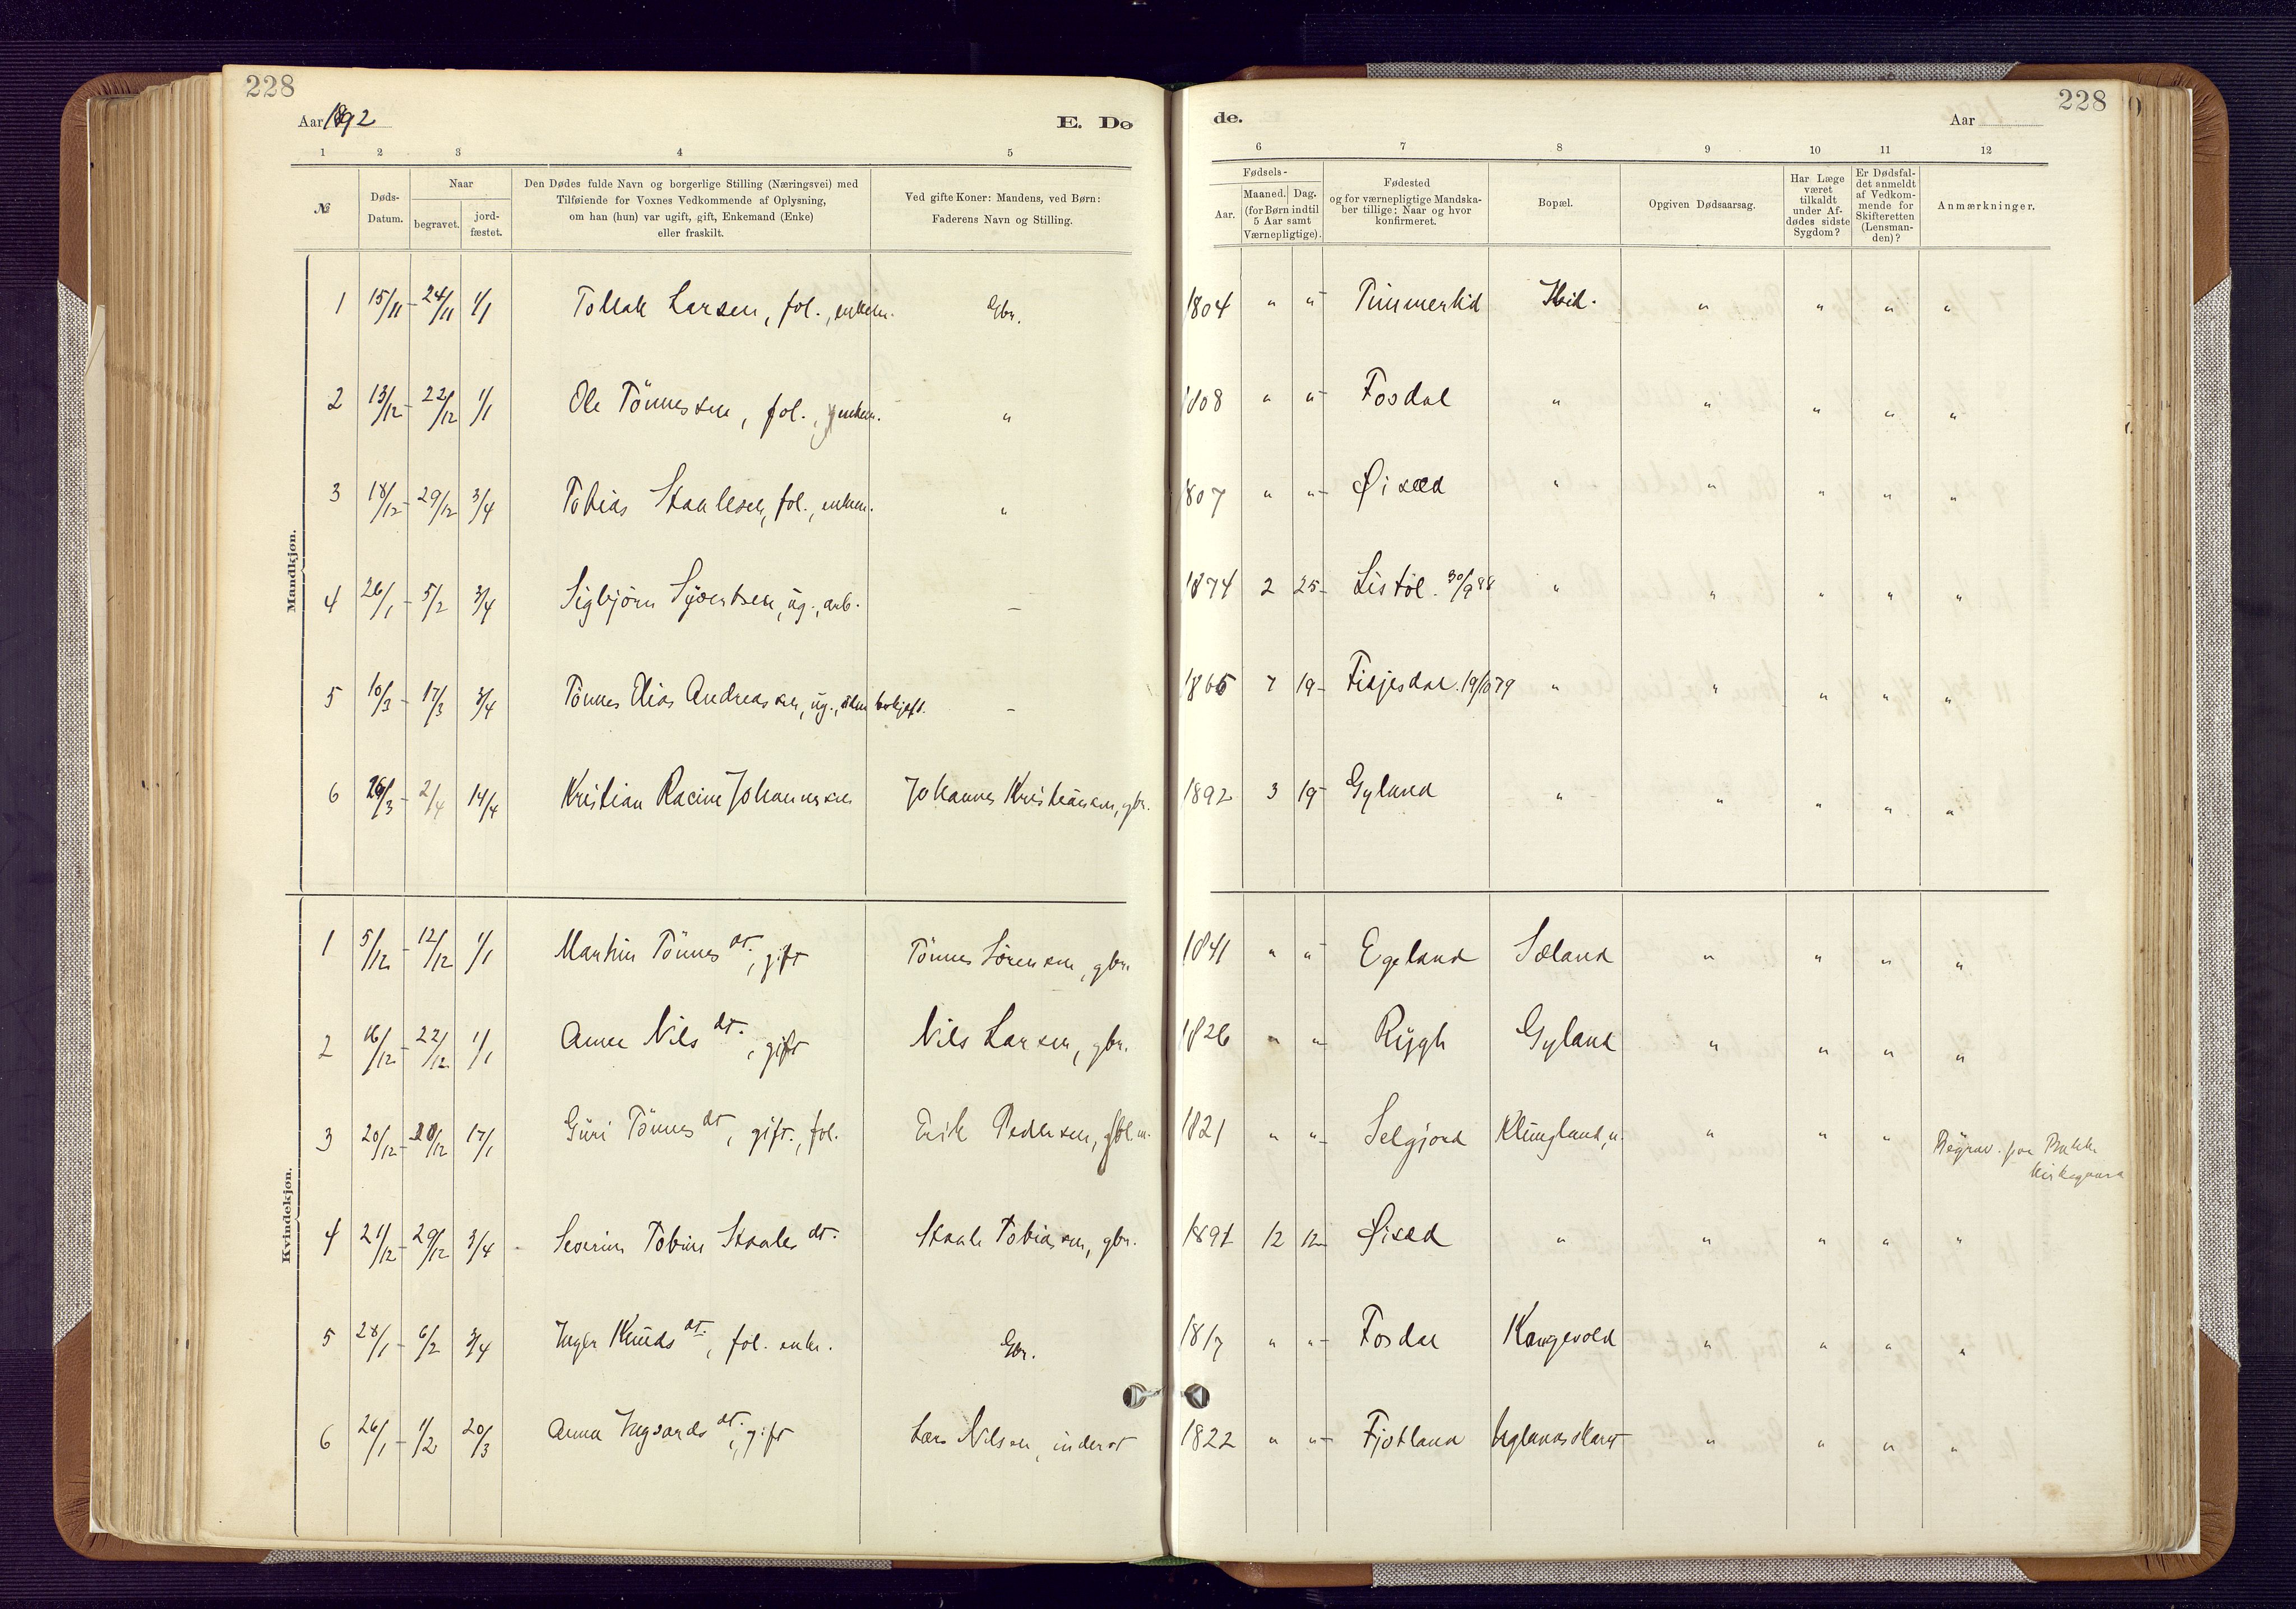 228
Aar 1892
E. Dø
1 2 3 4 5
№
Døds-
Datum.
Naar
begravet.
jord-
fæstet.
Den Dødes fulde Navn og borgerlige Stilling (Næringsvei) med
Tilføiende for Voxnes Vedkommende af Oplysning,
om han (hun) var ugift, gift, Enkemand (Enke)
eller fraskilt.
Ved gifte Koner: Mandens, ved Børn:
Faderens Navn og Stilling.
Mandkjøn.
1 15/11 - 24/11 1/1 Tollak Larsen, fol., enkem. Gbr.
2 13/12 - 22/12 1/1 Ole Tönnessen, fol., enkem. "
3 18/12 - 29/12 3/4 Tobias Staalesen, fol., enkem. "
4 26/1 - 5/2 3/4 Sigbjörn Syvertsen, ug., arb. –
5 10/3 - 17/3 3/4 Tönnes Elias Andreassen, ug., uden beskjeft. –
6 26/3 - 2/4 14/4 Kristian Racin Johannessen Johannes Kristiansen, gbr.
Kvindekjøn.
1 5/12 - 12/12 1/1 Martin Tönnesdt., gift Tönnes Sörensen, gbr.
2 16/12 - 22/12 1/1 Anne Nilsdt., gift Nils Larsen, gbr.
3 20/12 - 28/12 17/1 Guri Tönnesdt, gift., fol. Erik Pedersen, fol.m.
4 21/12 - 29/12 3/4 Severine Tobine Staalesdt. Staale Tobiassen, gbr.
5 28/1 - 6/2 3/4 Inger Knudsdt., fol. enke. Gbr.
6 26/1 - 1/2 20/3 Anna Ingvardsdt., gift Lars Nilsen, inderst
228
de.
Aar
6 7 8 9 10 11 12
Fødsels-
Aar.
Maaned. Dag.
(for Børn indtil
5 Aar samt
Værnepligtige).
Fødested
og for værnepligtige Mandska-
ber tillige: Naar og hvor
konfirmeret.
Bopæl.
Opgiven Dødsaarsag.
Har Læge
været
tilkaldt
under Af-
dødes sidste
Sygdom?
Er Dødsfal-
det anmeldt
af Vedkom-
mende for
Skifteretten
(Lensman-
den)?
Anmærkninger.
1804 " " Timmerlid Ibid. " " " "
1808 " " Fosdal " " " " "
1807 " " Øisæd " " " " "
1874 2 25 Listöl. 30/9 88 " " " " "
1865 7 19 Fidjesdal. 19/10 79 " " " " "
1892 3 19 Gyland " " " " "
1841 " " Egeland Sæland " " " "
1826 " " Rygh Gyland " " " "
1821 " " Selgjord Klungland, n. " " " Begrav. paa Bakke
kirkegaard
1891 12 12 Øisæd " " " " "
1817 " " Fosdal Kongevold " " " "
1822 " " Fjotland Uglandsskaret " " " "